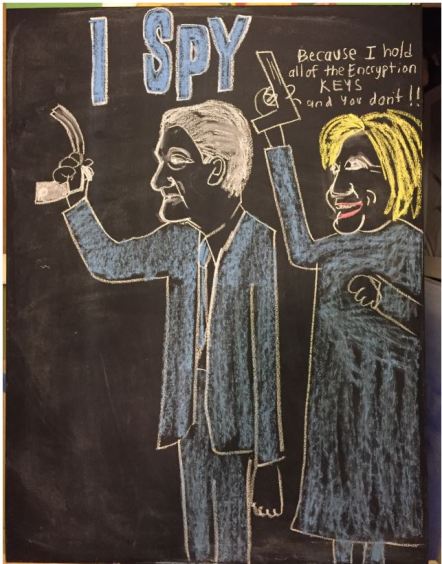 I SPY
Because I hold
all of the Encryption
KEYS
and you don't !!